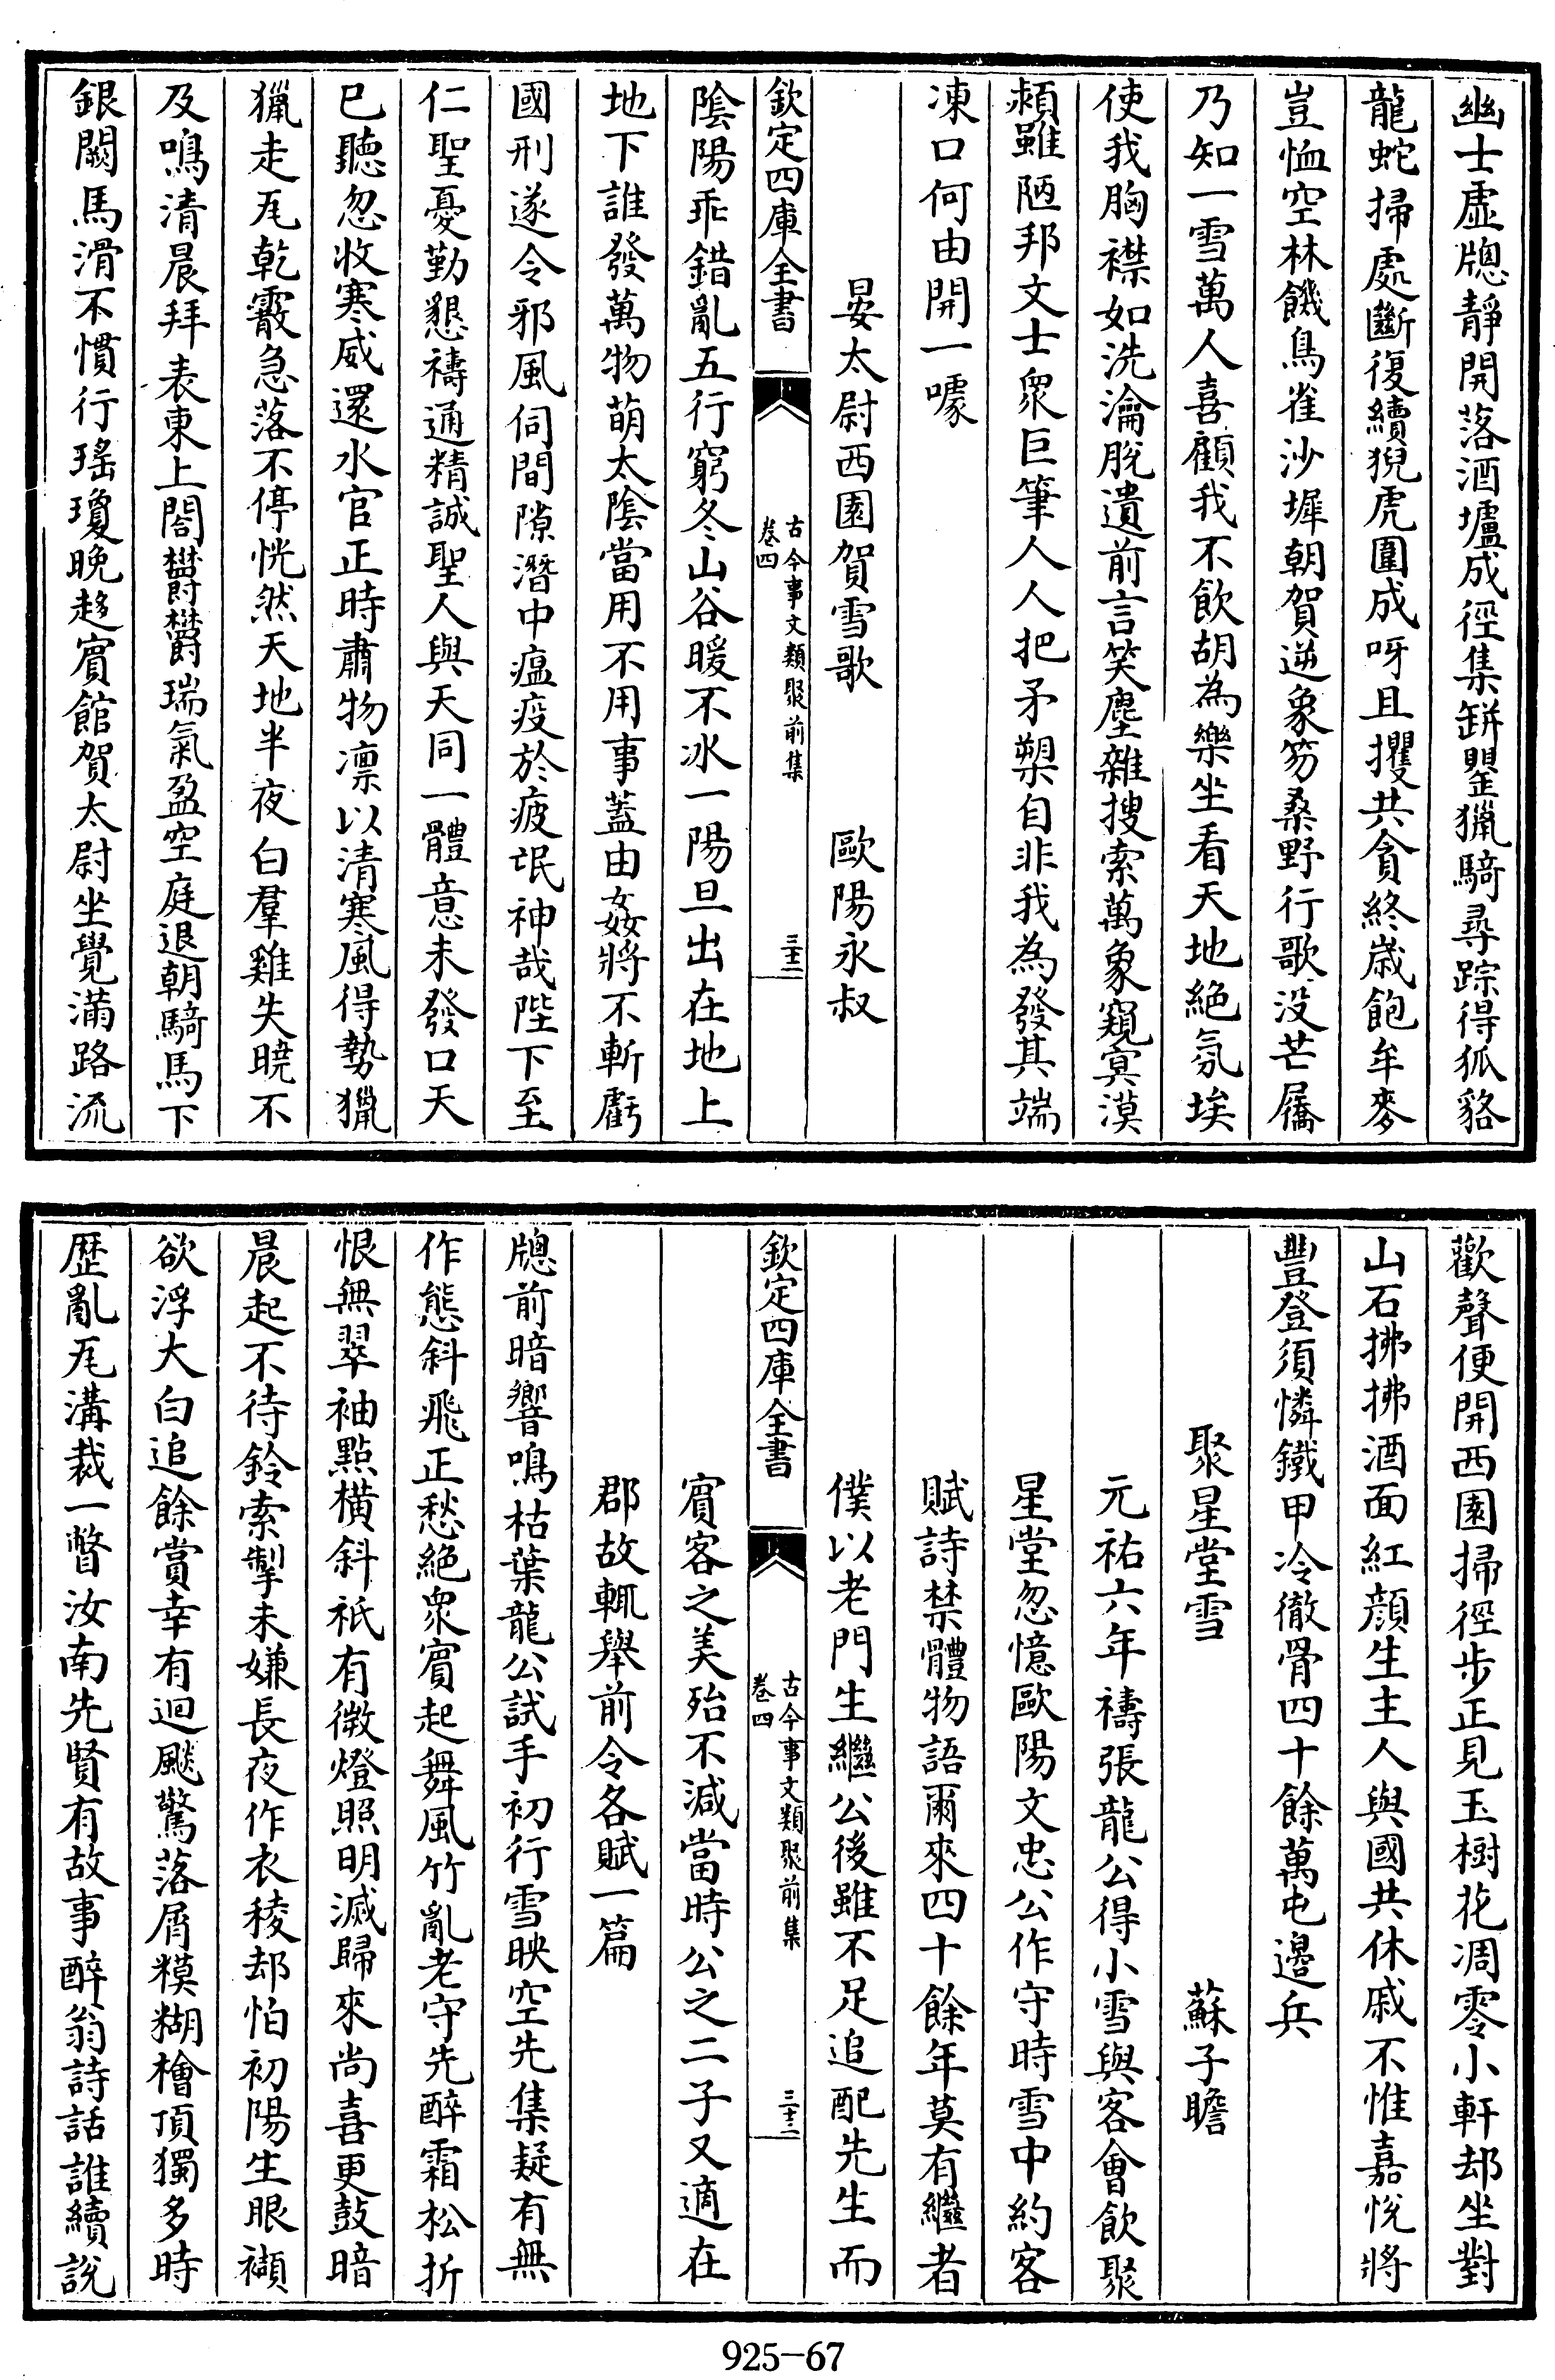 幽士虛牕靜開落酒壚成徑集缾罌獵騎尋踪得狐貉
龍蛇掃處斷復續猊虎團成呀且攫共貪終歲飽牟麥
豈恤空林饑鳥雀沙墀朝賀迷象笏桑野行歌没芒屩
乃知一雪萬人喜顧我不飲胡為樂坐看天地絶氛埃
使我胸襟如洗瀹脫遺前言笑塵雜搜索萬象窺㝠漠
頼雖陋邦文士衆巨筆人人把矛槊自非我為發其端
凍口何由開一噱
晏太尉西園賀雪歌　歐陽永叔
欽定四庫全書
古今事文類聚前集
卷四
三十二
陰陽乖錯亂五行窮冬山谷暖不冰一陽旦出在地上
地下誰發萬物萌太陰當用不用事蓋由姦將不斬虧
國刑遂令邪風伺間隙潛中瘟疫於疲氓神哉陛下至
仁聖憂勤懇禱通精誠聖人與天同一體意未發口天
已聽忽收寒威還水官正時肅物凛以清寒風得勢獵
獵走瓦乾霰急落不停恍然天地半夜白羣雞失曉不
及鳴清晨拜表東上閤欝欝瑞氣盈空庭退朝騎馬下
銀闕馬滑不慣行瑤瓊晚趍賓館賀太尉坐覺滿路流
歡聲便開西園掃徑步正見玉樹花凋零小軒却坐對
山石拂拂酒面紅顔生主人與國共休戚不惟嘉悅將
豐登須憐鐵甲冷徹骨四十餘萬屯邊兵
聚星堂雪　蘇子瞻
元祐六年禱張龍公得小雪與客會飲聚
星堂忽憶歐陽文忠公作守時雪中約客
賦詩禁體物語爾來四十餘年莫有繼者
僕以老門生繼公後雖不足追配先生而
欽定四庫全書
古今事文類聚前集
卷四
三十二
賓客之美殆不減當時公之二子又適在
郡故輒舉前令各賦一篇
牕前暗響鳴枯葉龍公試手初行雪映空先集疑有無
作態斜飛正愁絶衆賓起舞風竹亂老守先醉霜松折
恨無翠袖點橫斜祇有微燈照明滅歸來尚喜更鼓暗
晨起不待鈴索掣未嫌長夜作衣稜却怕初陽生眼纈
欲浮大白追餘賞幸有迴飈驚落屑糢糊檜頂獨多時
歷亂瓦溝裁一瞥汝南先賢有故事醉翁詩話誰續說
925-67